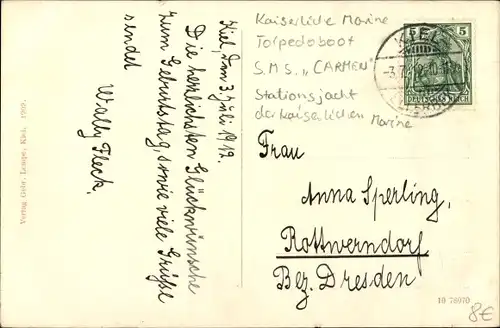 Kiel, den 3. Juli 1912.
Die herzlichsten Glückwünsche
zum Geburtstag, sowie viele Grüße
sendet
Wally Fleck.
Kaiserliche Marine
Torpedoboot
S.M.S. „CARMEN"
Stationsjacht
der Kaiserlichen Marine
KIEL
5 5
DEUTSCHES REICH
Frau
Anna Sperling,
Rottwerndorf
Bez. Dresden
Verlag Gebr. Lempe, Kiel. 1909.
10 78970
8€